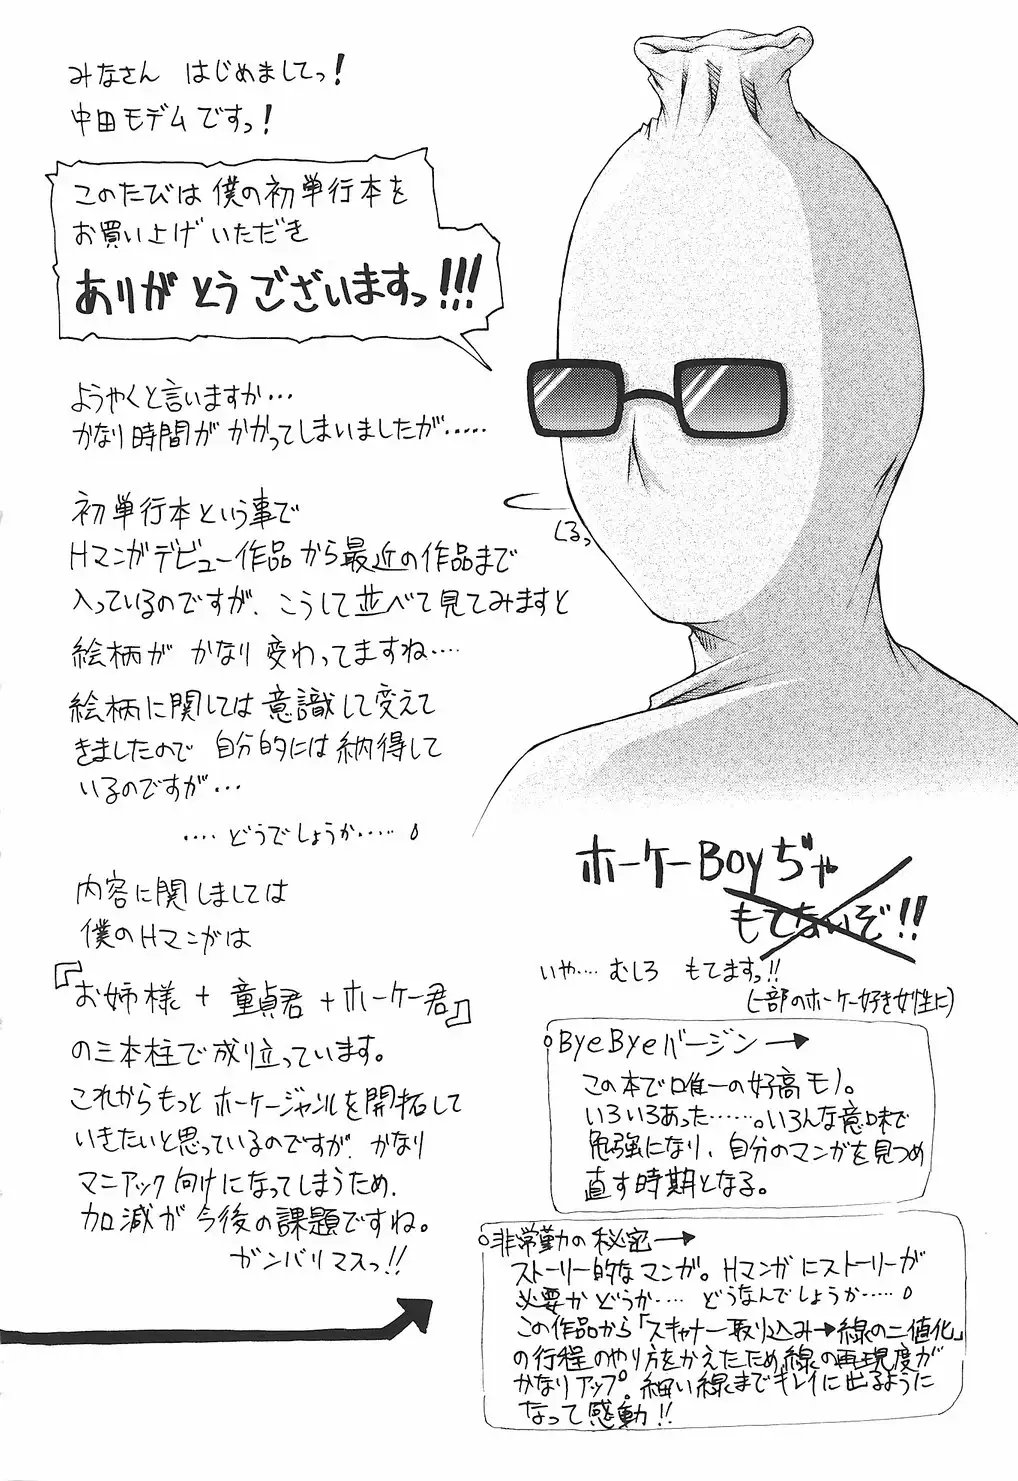 みなさん はじめましてっ!
中田モデムですっ!
このたびは僕の初単行本を
お買い上げいただき
ありがとうございますっ!!!
ようやくと言いますか…
かなり時間がかかってしまいましたが……
初単行本という事で
Hマンガデビュー作品から最近の作品まで
入っているのですが、こうして並べて見てみますと
絵柄がかなり変わってますね……
絵柄に関しては意識して変えて
きましたので自分的には納得して
いるのですが…
……どうでしょうか……
内容に関しましては
僕のHマンガは
『お姉様+童貞君+ホーケー君』
の三本柱で成り立っています。
これからもっとホーケージャンルを開拓して
いきたいと思っているのですが、かなり
マニアック向けになってしまうため、
加減が今後の課題ですね。
ガンバリマスっ!!
くるっ
ホーケーBoyぢゃ
もてないぞ!!
いや……むしろ もてますっ!!
(一部のホーケー好き女性に)
○ByeByeバージン→
この本で唯一の好高モノ。
いろいろあった……。いろんな意味で
勉強になり、自分のマンガを見つめ
直す時期となる。
○非常勤の秘密→
ストーリー的なマンガ。Hマンガにストーリーが
必要かどうか……どうなんでしょうか……
この作品から「スキャナー取り込み→線の二値化」
の行程のやり方をかえたため線の再現度が
かなりアップ。細い線までキレイに出るように
なって感動!!